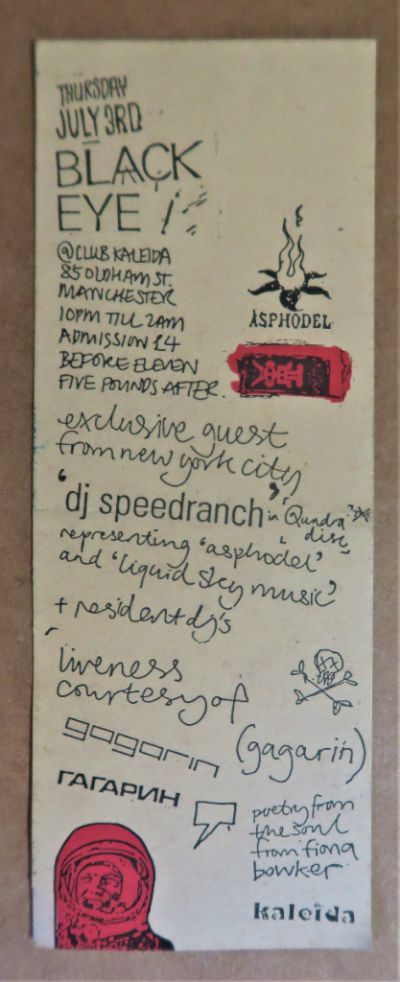 THURSDAY
JULY 3RD
BLACK
EYE !
@CLUB KALEIDA
85 OLDHAM ST.
MANCHESTER
10PM TILL 2AM
ADMISSION £4
BEFORE ELEVEN
FIVE POUNDS AFTER.
ASPHODEL
exclusive guest
from new york city
'dj speedranch' in 'Quadra
disc'
representing 'asphodel'
and 'liquid sky music'
+ resident dj's
liveness
courtesy of
gagarin (gagarin)
ГАГАРИН
poetry from
the soul
from fiona
bowker
kaleida